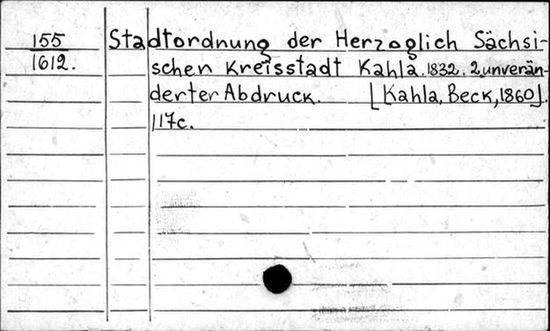 155 Stadtordnung der Herzoglich Sächsi-
1612. schen Kreisstadt Kahla. 1832. 2. unverän-
derter Abdruck. [Kahla, Beck, 1860].
117c.